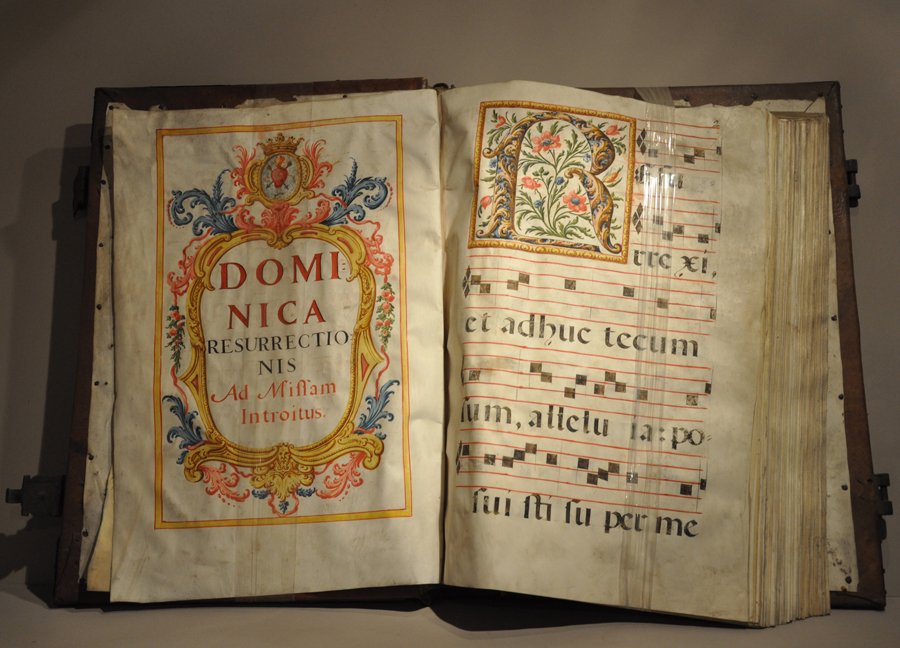 DOMI
NICA
RESURRECTIO
NIS
Ad Miſſam
Introitus.
R
rre xi,
et adhuc tecum
ſum, allelu ia: po=
ſui ſti ſu per me